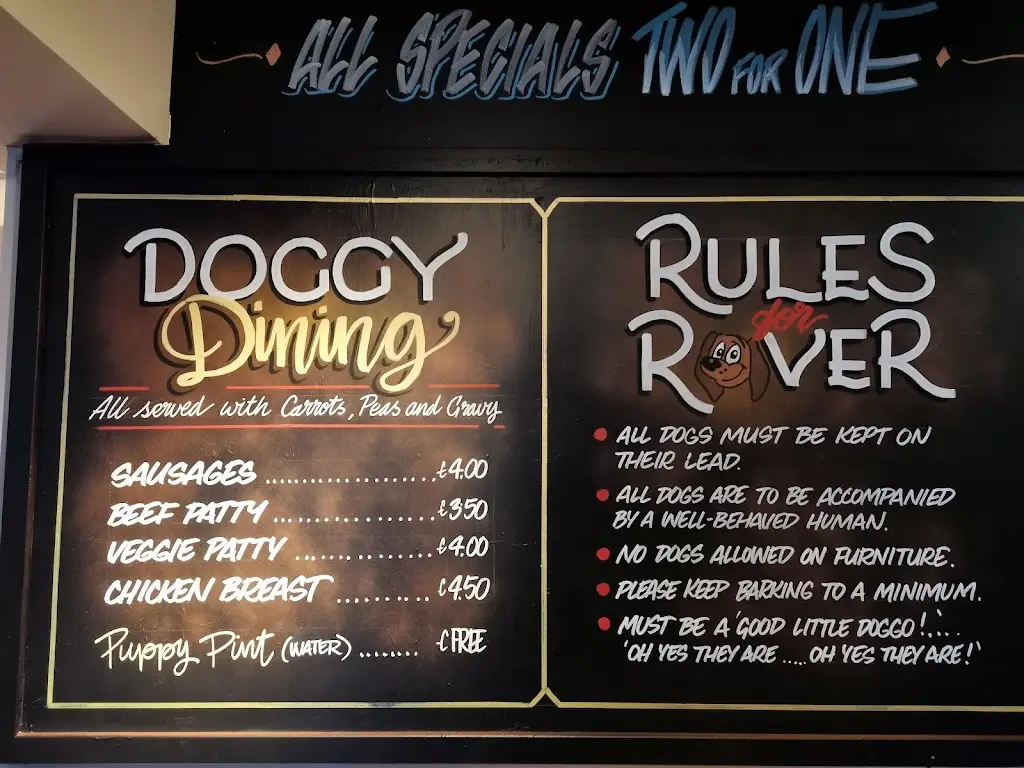 ALL SPECIALS TWO FOR ONE
DOGGY
Dining
All served with Carrots, Peas and Gravy
SAUSAGES ..................... £4.00
BEEF PATTY .................... £3.50
VEGGIE PATTY ................. £4.00
CHICKEN BREAST .......... £4.50
Puppy Pint (WATER) ........ £ FREE
RULES
for
ROVER
• ALL DOGS MUST BE KEPT ON
THEIR LEAD.
• ALL DOGS ARE TO BE ACCOMPANIED
BY A WELL-BEHAVED HUMAN.
• NO DOGS ALLOWED ON FURNITURE.
• PLEASE KEEP BARKING TO A MINIMUM.
• MUST BE A 'GOOD LITTLE DOGGO!'....
'OH YES THEY ARE ..... OH YES THEY ARE!'